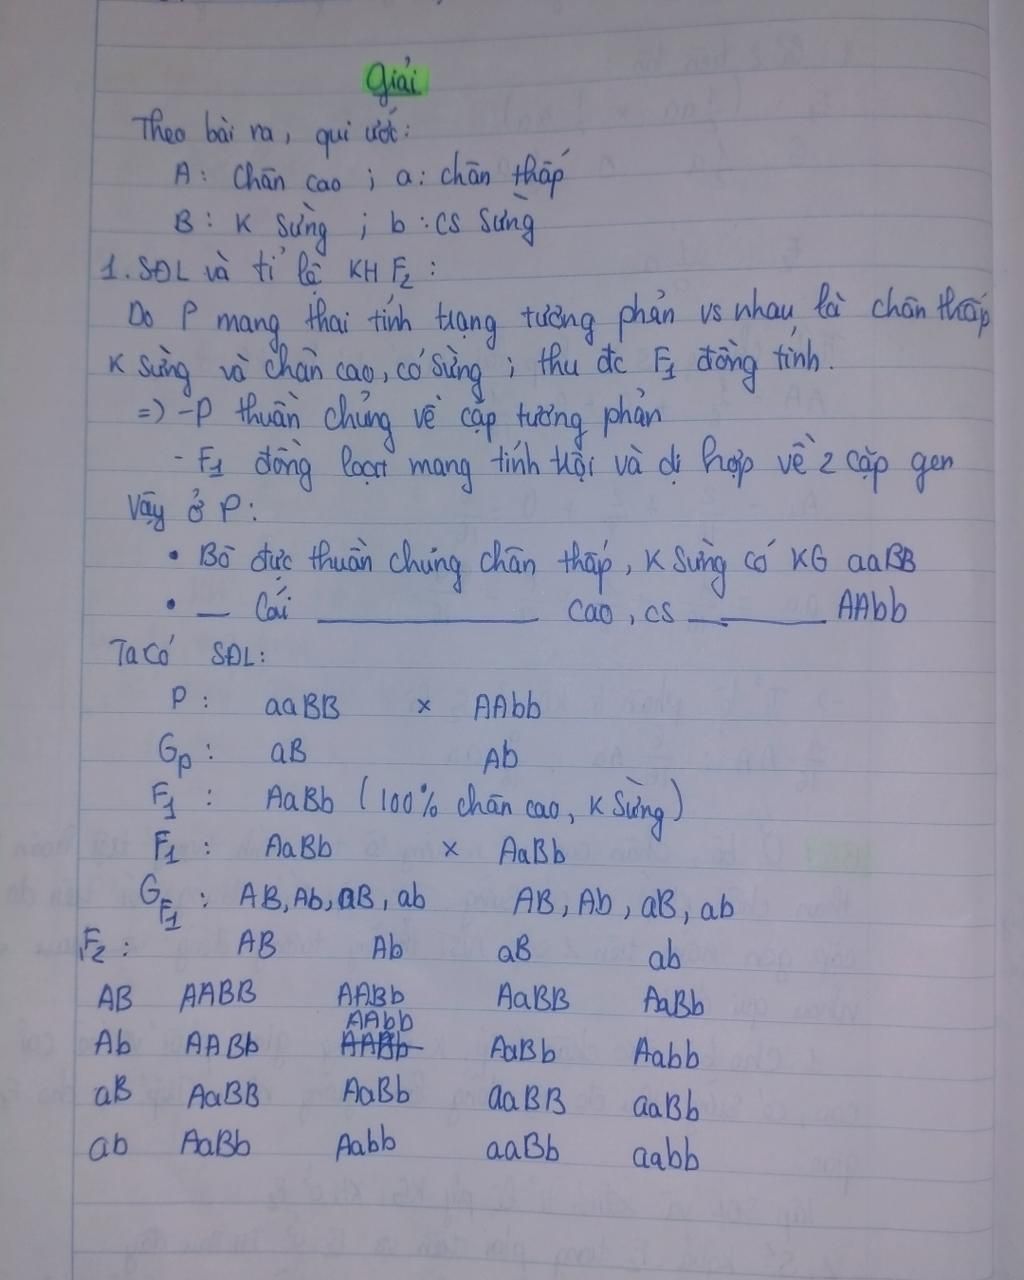 Giải
Theo bài ra, qui ước:
A: Chân cao ; a: chân thấp
B: K sừng ; b: cs sừng
1. SĐL và tỉ lệ KH F₂:
Do P mang thai tính trạng tương phản vs nhau là chân thấp
K sừng và chân cao, có sừng ; thu đc F₁ đồng tính.
=> - P thuần chủng về cặp tương phản
- F₁ đồng loạt mang tính trội và dị hợp về 2 cặp gen
Vậy ở P:
• Bò đực thuần chủng chân thấp, K sừng có KG aaBB
• — Cái ——— cao, cs ——— AAbb
Ta có SĐL:
P: aaBB x AAbb
Gp: aB Ab
F₁: AaBb (100% chân cao, K sừng)
F₁: AaBb x AaBb
G F₁: AB, Ab, aB, ab AB, Ab, aB, ab
F₂: AB Ab aB ab
AB AABB AABb AaBB AaBb
AAbb
Ab AABb AABb AaBb Aabb
aB AaBB AaBb aaBB aaBb
ab AaBb Aabb aaBb aabb